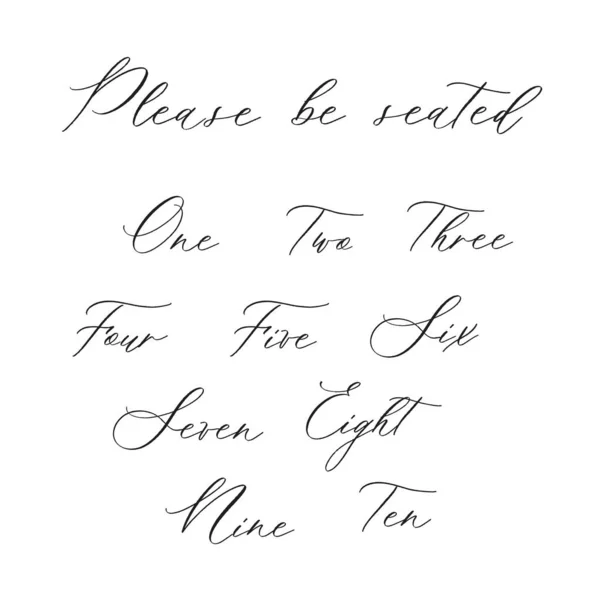 Please be seated
One Two Three
Four Five Six
Seven Eight
Nine Ten